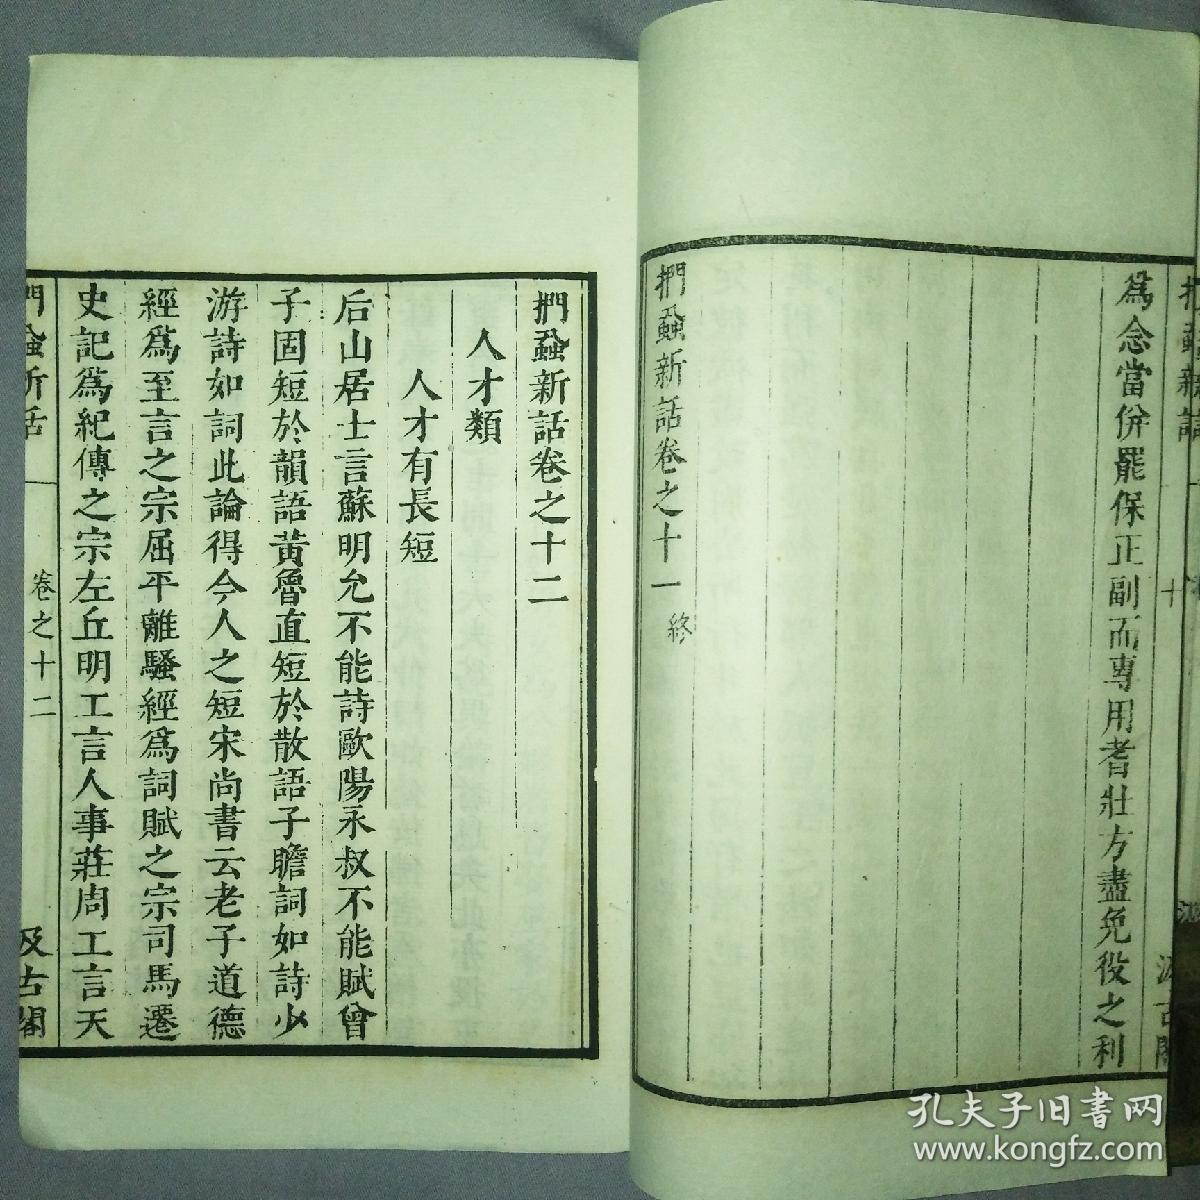 爲念當併罷保正副而專用耆壯方盡免役之利
捫蝨新話卷之十一 終
捫蝨新話卷之十二
人才類
人才有長短
后山居士言蘇明允不能詩歐陽永叔不能賦曾
子固短於韻語黃魯直短於散語子瞻詞如詩少
游詩如詞此論得今人之短宋尚書云老子道德
經爲至言之宗屈平離騷經爲詞賦之宗司馬遷
史記爲紀傳之宗左丘明工言人事莊周工言天
捫蝨新話
卷之十二
汲古閣
孔夫子旧书网
www.kongfz.com